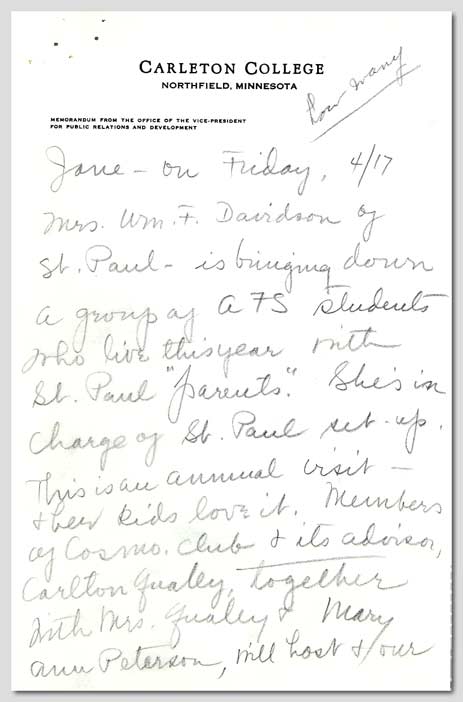 CARLETON COLLEGE
NORTHFIELD, MINNESOTA
How many
MEMORANDUM FROM THE OFFICE OF THE VICE-PRESIDENT
FOR PUBLIC RELATIONS AND DEVELOPMENT
Jane - on Friday, 4/17
Mrs. Wm. F. Davidson of
St. Paul - is bringing down
a group of AFS students
who live this year with
St. Paul "parents". She's in
charge of St. Paul set-up.
This is an annual visit -
& her kids love it. Members
of Cosmo. Club & its advisor,
Carlton Qualey, together
with Mrs. Qualey & Mary
Ann Peterson, will host & our